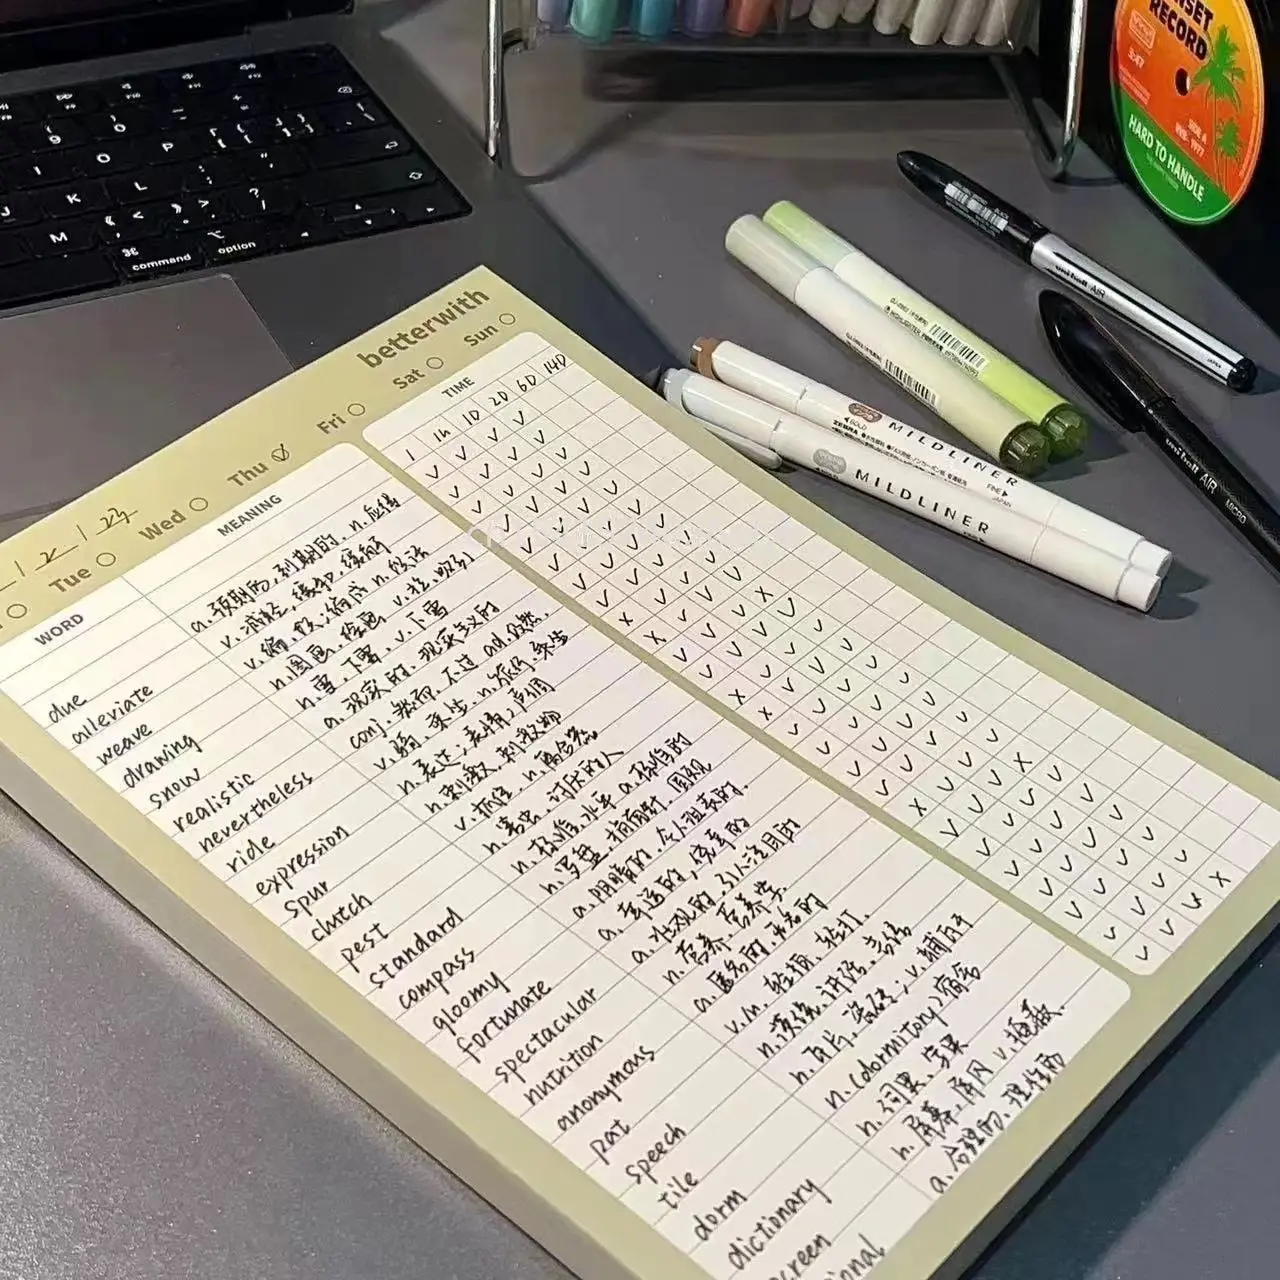 command
option
SET
RECORD
3:47
SIDE A
HARD TO HANDLE
uni-ball AIR
JAPAN
uni-ball AIR
MICRO
BOLD
ZEBRA
MILDLINER
FINE
JAPAN
MILDLINER
betterwith
Tue Wed Thu Fri Sat Sun
WORD MEANING TIME
1 1h 1D 2D 6D 14D
due a.预期的,到期的,n.应得
alleviate v.减轻,缓和,缓解
weave
drawing n.图画,绘画 v.拉,吸引
snow n.雪,下雪 v.下雪
realistic a.现实的,现实主义的
nevertheless conj.然而,不过 ad.仍然
ride v.骑,乘坐 n.旅行,乘坐
expression n.表达;表情;声调
spur n.刺激,刺激物
clutch v.抓住 n.离合器
pest n.害虫,讨厌的人
standard n.标准,水平 a.标准的
compass n.罗盘,指南针
gloomy a.阴暗的,令人沮丧的
fortunate a.幸运的
spectacular a.壮观的,引人注目的
nutrition n.营养,营养学
anonymous a.匿名的
pat v./n.轻拍,轻打
speech n.演说,讲话,言语
tile n.瓦片,瓷砖;v.铺瓦于
dorm n.(dormitory)宿舍
dictionary n.词典,字典
creen n.屏幕,屏风 v.掩蔽
ional a.合理的,理性的